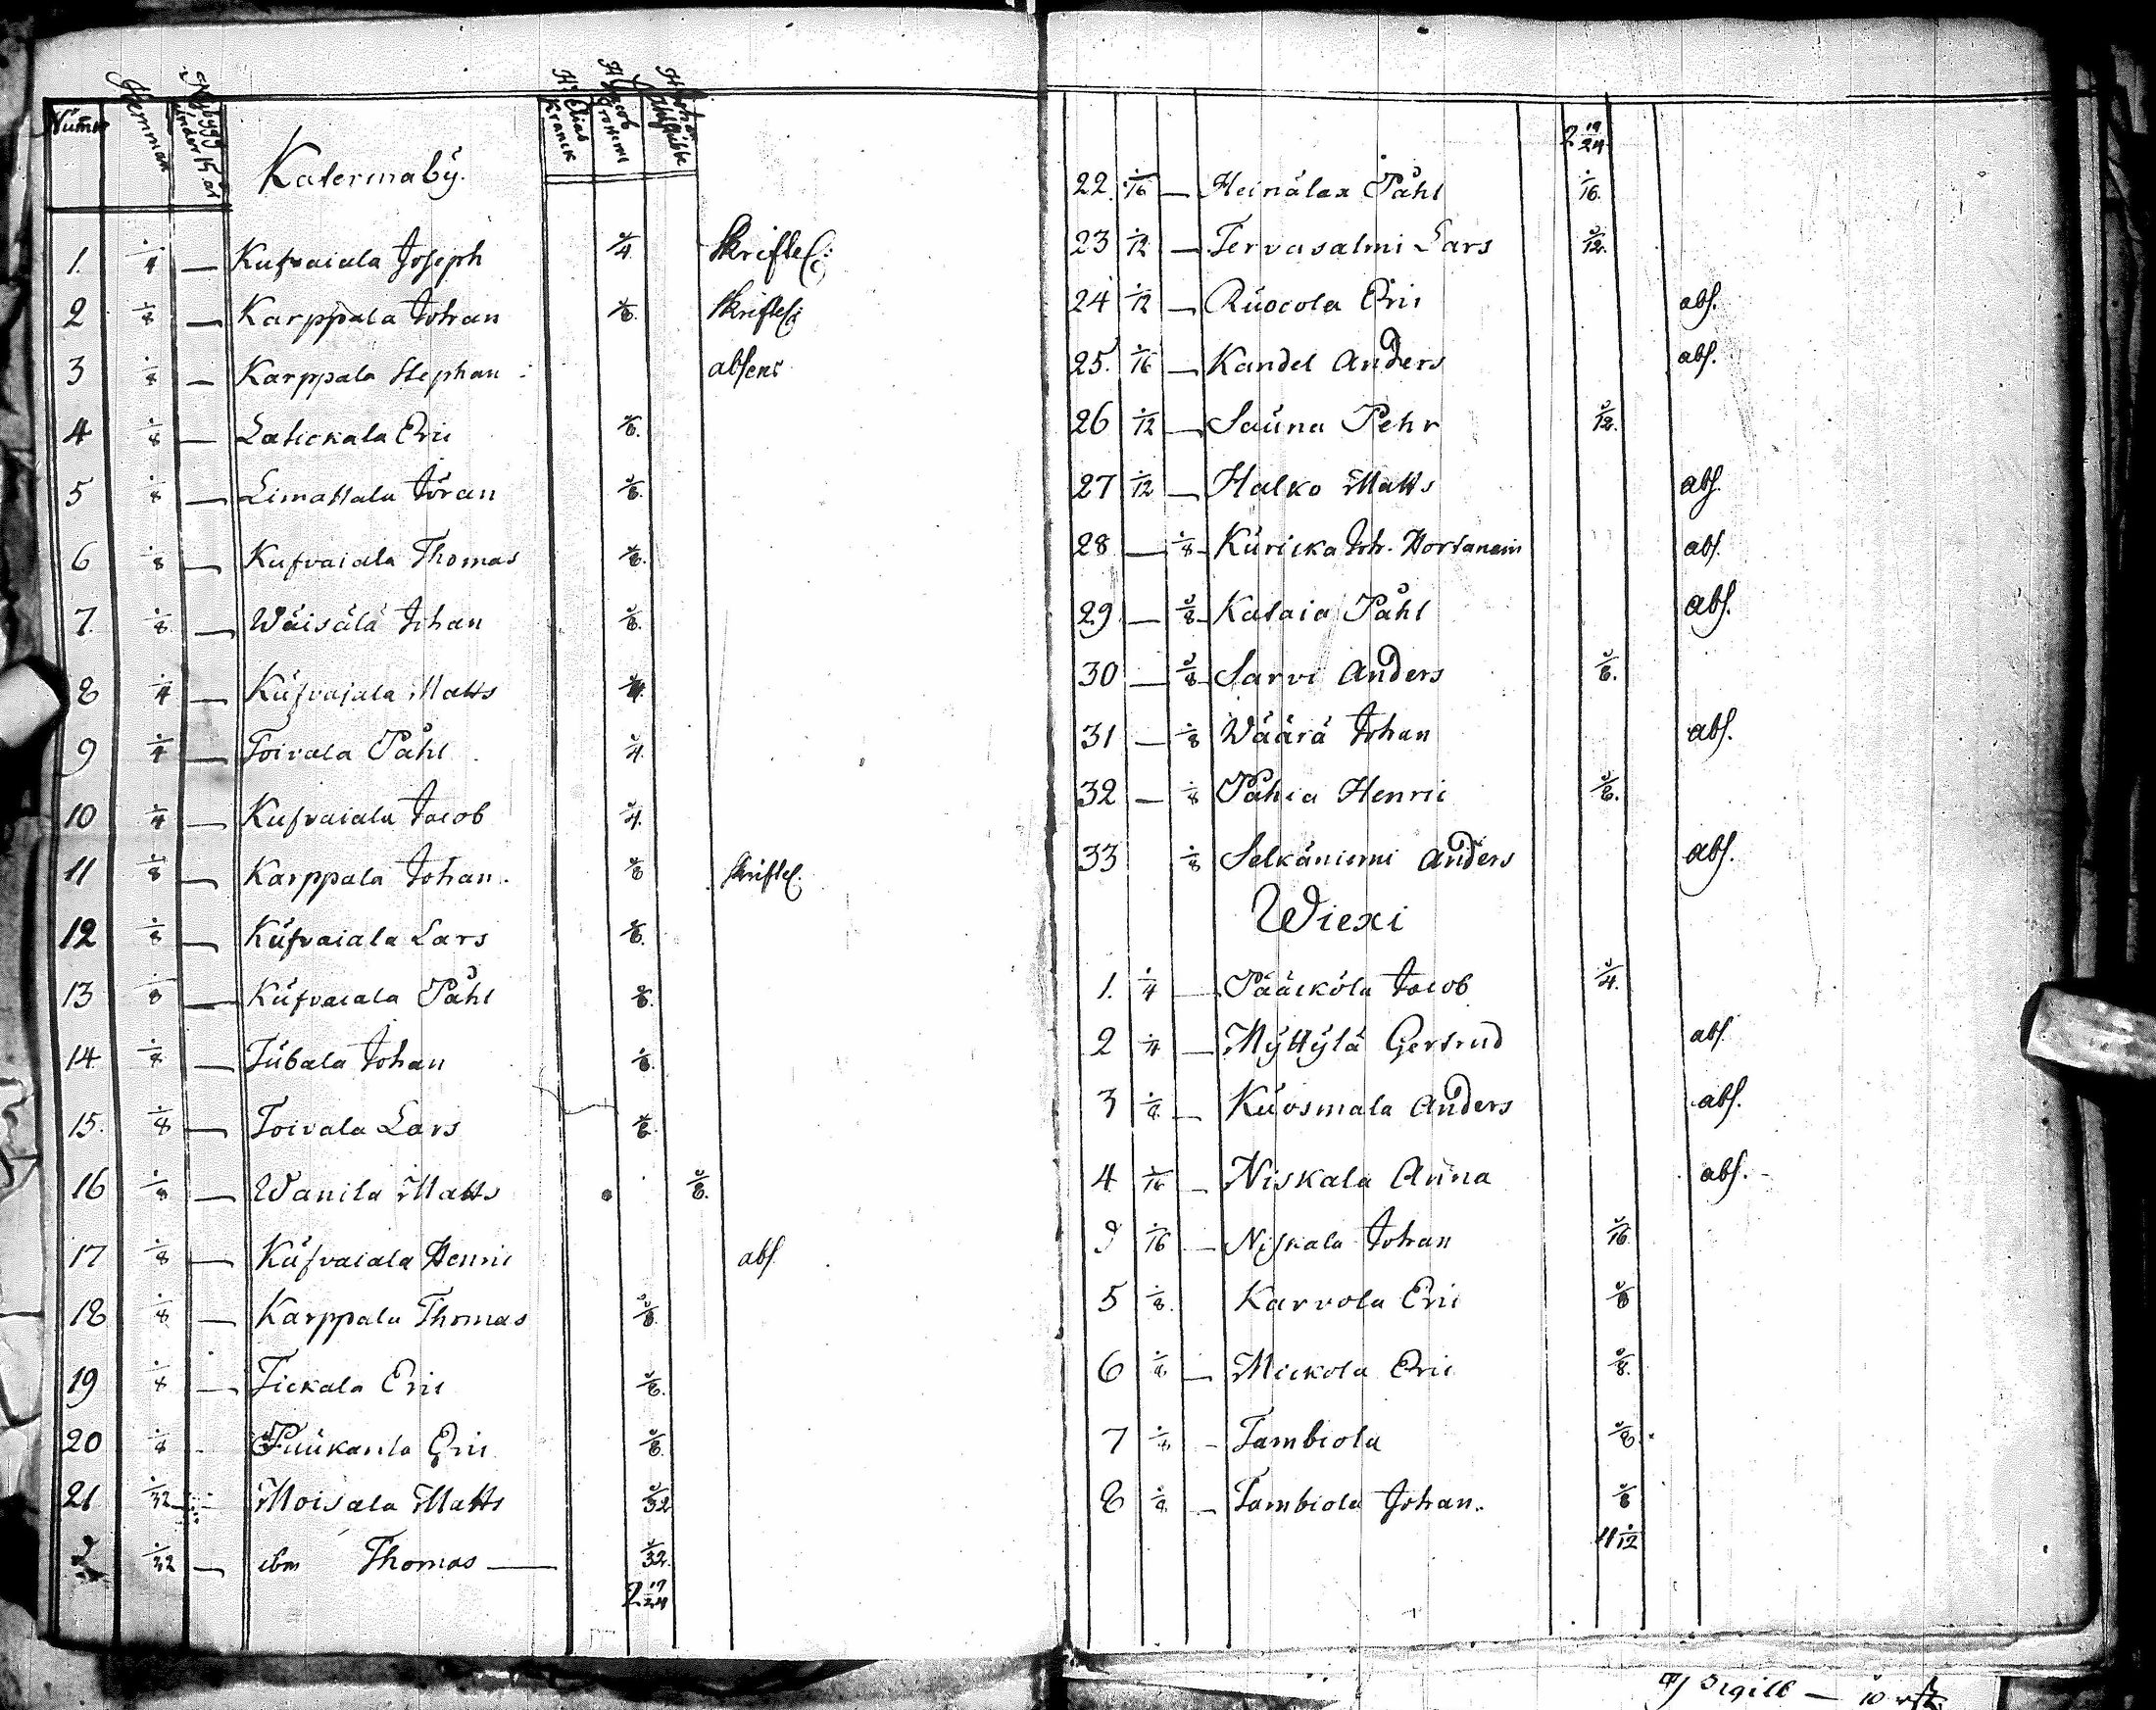 Numr Hemman Nybygg under 15 år Katermaby. Hr Elias Kranck Hr Jacob Hr Johan
1. 1/4 — Kufvaiala Joseph 1/4 Skriftel:
2 1/8 — Karppala Johan 1/8. Skriftel:
3 1/8 — Karppala Stephan absens
4 1/8 — Latickala Eric 1/8.
5 1/8 — Limattala Jöran 1/8.
6 1/8 — Kufvaiala Thomas 1/8.
7. 1/8 — Wäisälä Johan 1/8.
8 1/4 — Kufvaiala Matts 1/4.
9 1/4 — Toivala Påhl 1/4.
10 1/4 — Kufvaiala Jacob 1/4.
11 1/8 — Karppala Johan. 1/8 Skriftel.
12 1/8 — Kufvaiala Lars 1/8.
13 1/8 — Kufvaiala Påhl 1/8.
14. 1/8 — Tubala Johan 1/8.
15. 1/8 — Toivala Lars 1/8.
16 1/8 — Wanila Matts 1/8.
17 1/8 — Kufvaiala Henric abs.
18 1/8 — Karppala Thomas 1/8.
19 1/8 — Tickala Eric 1/8.
20 1/8 - Eric 1/8.
21 1/32 - Moisala Matts 1/32
1/32 — ibm Thomas — 1/32.
2 19/24
2 19/24
22. 1/16 — Heinälax Påhl 1/16.
23 1/12 — Tervasalmi Lars 1/12.
24 1/12 — Ruocola Eric abs.
25. 1/16 — Kandel Anders abs.
26 1/12 — Sauna Pehr 1/12.
27 1/12 — Halko Matts abs.
28 — 1/8 Kuricka Joh. Hortanain abs.
29 — 1/8 Kataia Påhl abs.
30 — 1/8 Sarvi Anders 1/8.
31 — 1/8 Wäärä Johan abs.
32 — 1/8 Påhia Henric 1/8.
33 1/8 Selkäniemi Anders abs.
Wiexi
1. 1/4 — Pääckölä Jacob 1/4.
2 1/4 — Myttylä Gertrud abs.
3 1/8 — Kuosmala Anders abs.
4 1/16 — Niskala Anna abs.
1/16 — Niskala Johan 1/16
5 1/8. Karvola Eric 1/8
6 1/8 — Mickola Eric 1/8.
7 1/8 - Tambiola 1/8.
8 1/8 — Tambiola Johan. 1/8